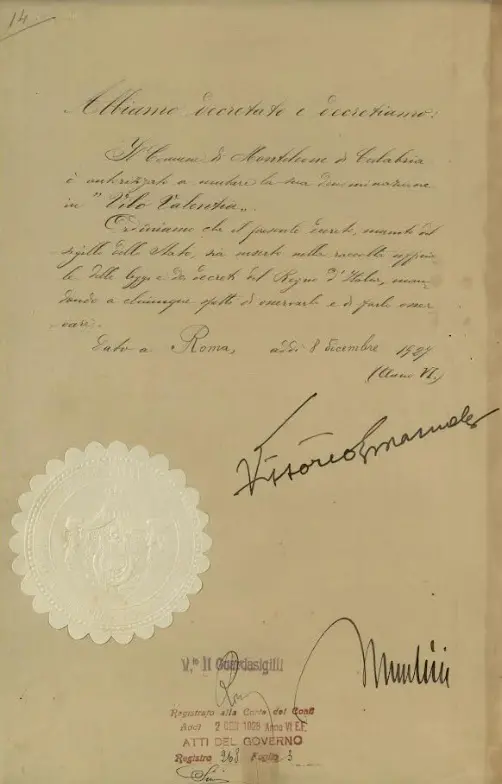 14
Abbiamo decretato e decretiamo:
Il Comune di Monteleone di Calabria
è autorizzato a mutare la sua denominazione
in "Vibo Valentia".
Ordiniamo che il presente decreto, munito del
sigillo dello Stato, sia inserto nella raccolta uffi
le delle leggi e dei decreti del Regno d'Italia, man
dando a chiunque spetti di osservarlo e di farlo osser
vare.
Dato a Roma, addì 8 dicembre 1927
(Anno VI)
Vittorio Emanuele
V.to Il Guardasigilli
Mussolini
Registrato alla Corte dei Conti
Addì 2 GEN 1928 Anno VI E.F.
ATTI DEL GOVERNO
Registro 268 Foglio 3